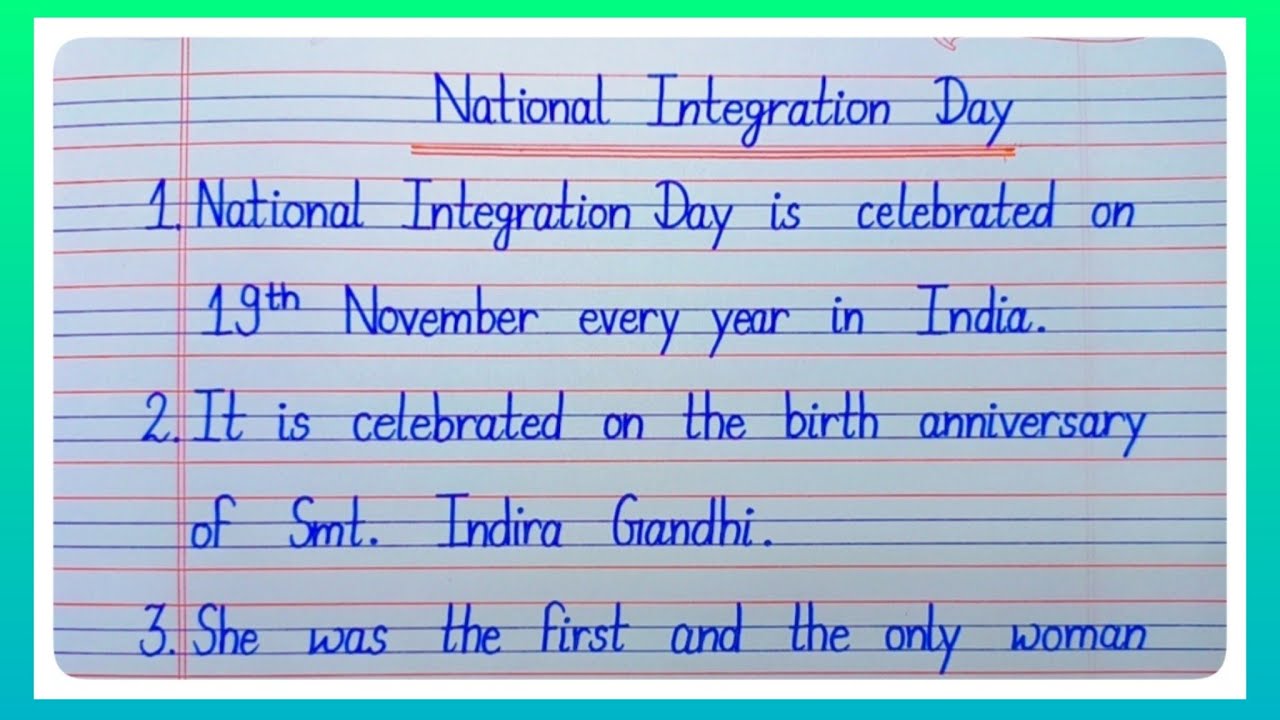 National Integration Day
1. National Integration Day is celebrated on
19th November every year in India.
2. It is celebrated on the birth anniversary
of Smt. Indira Gandhi.
3. She was the first and the only woman